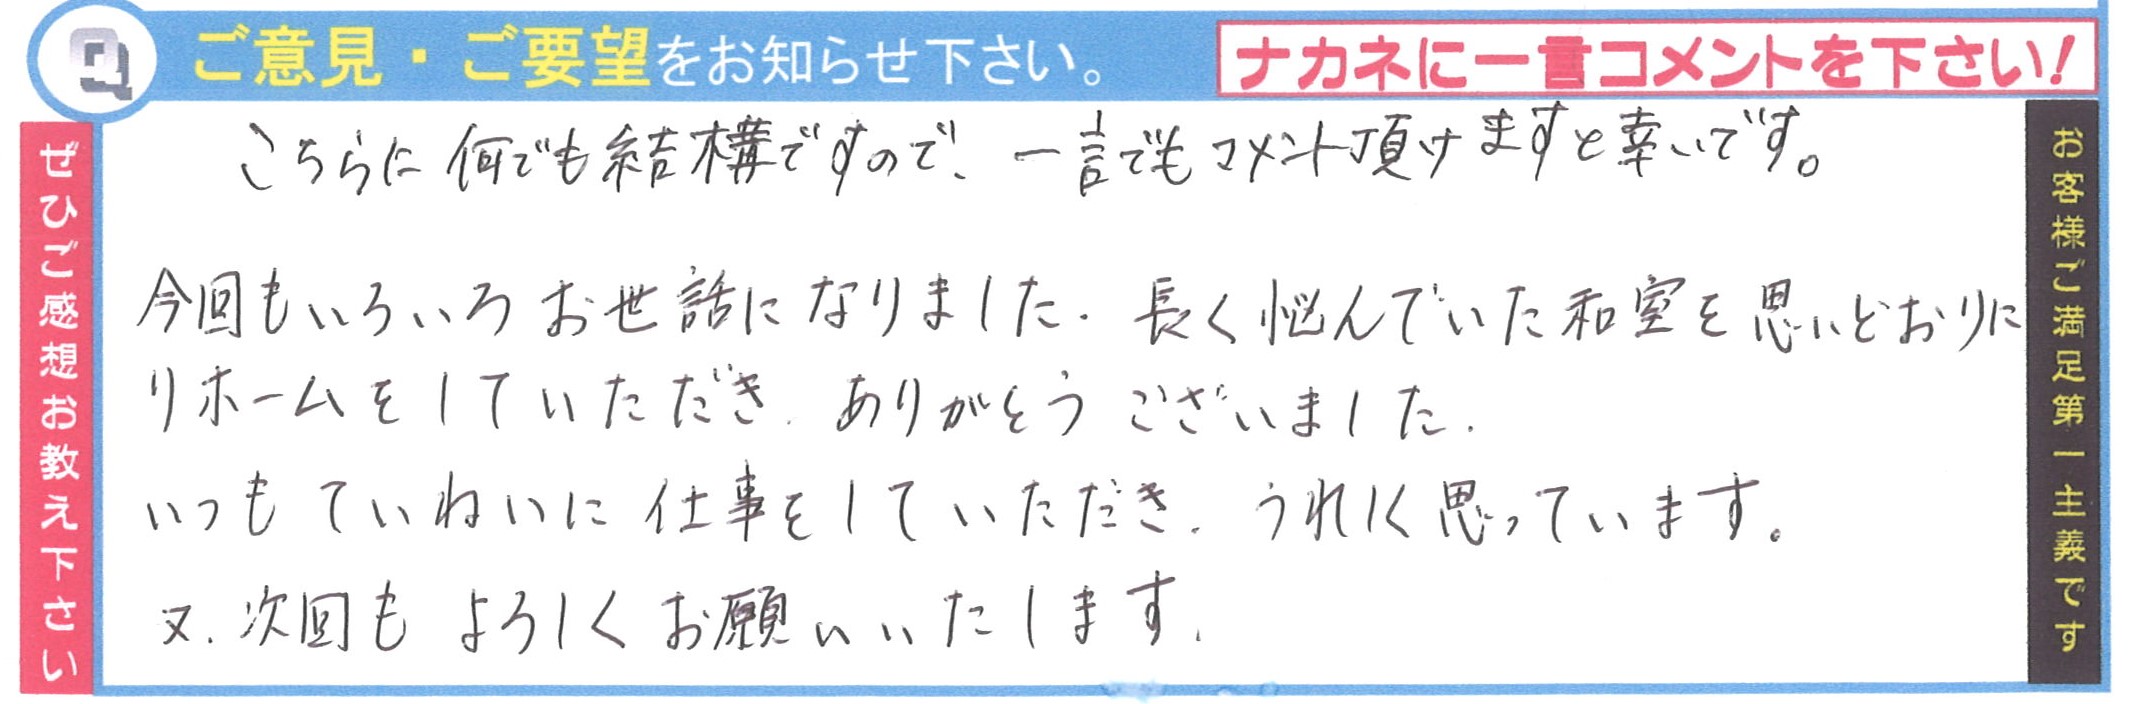 Q ご意見・ご要望をお知らせ下さい。
ナカネに一言コメントを下さい!
ぜひご感想お教え下さい
こちらに何でも結構ですので、一言でもコメント頂けますと幸いです。
今回もいろいろお世話になりました. 長く悩んでいた和室を思いどおりに
リホームをしていただき. ありがとうございました.
いつもていねいに仕事をしていただき. うれしく思っています。
又. 次回もよろしくお願いいたします.
お客様ご満足第一主義です